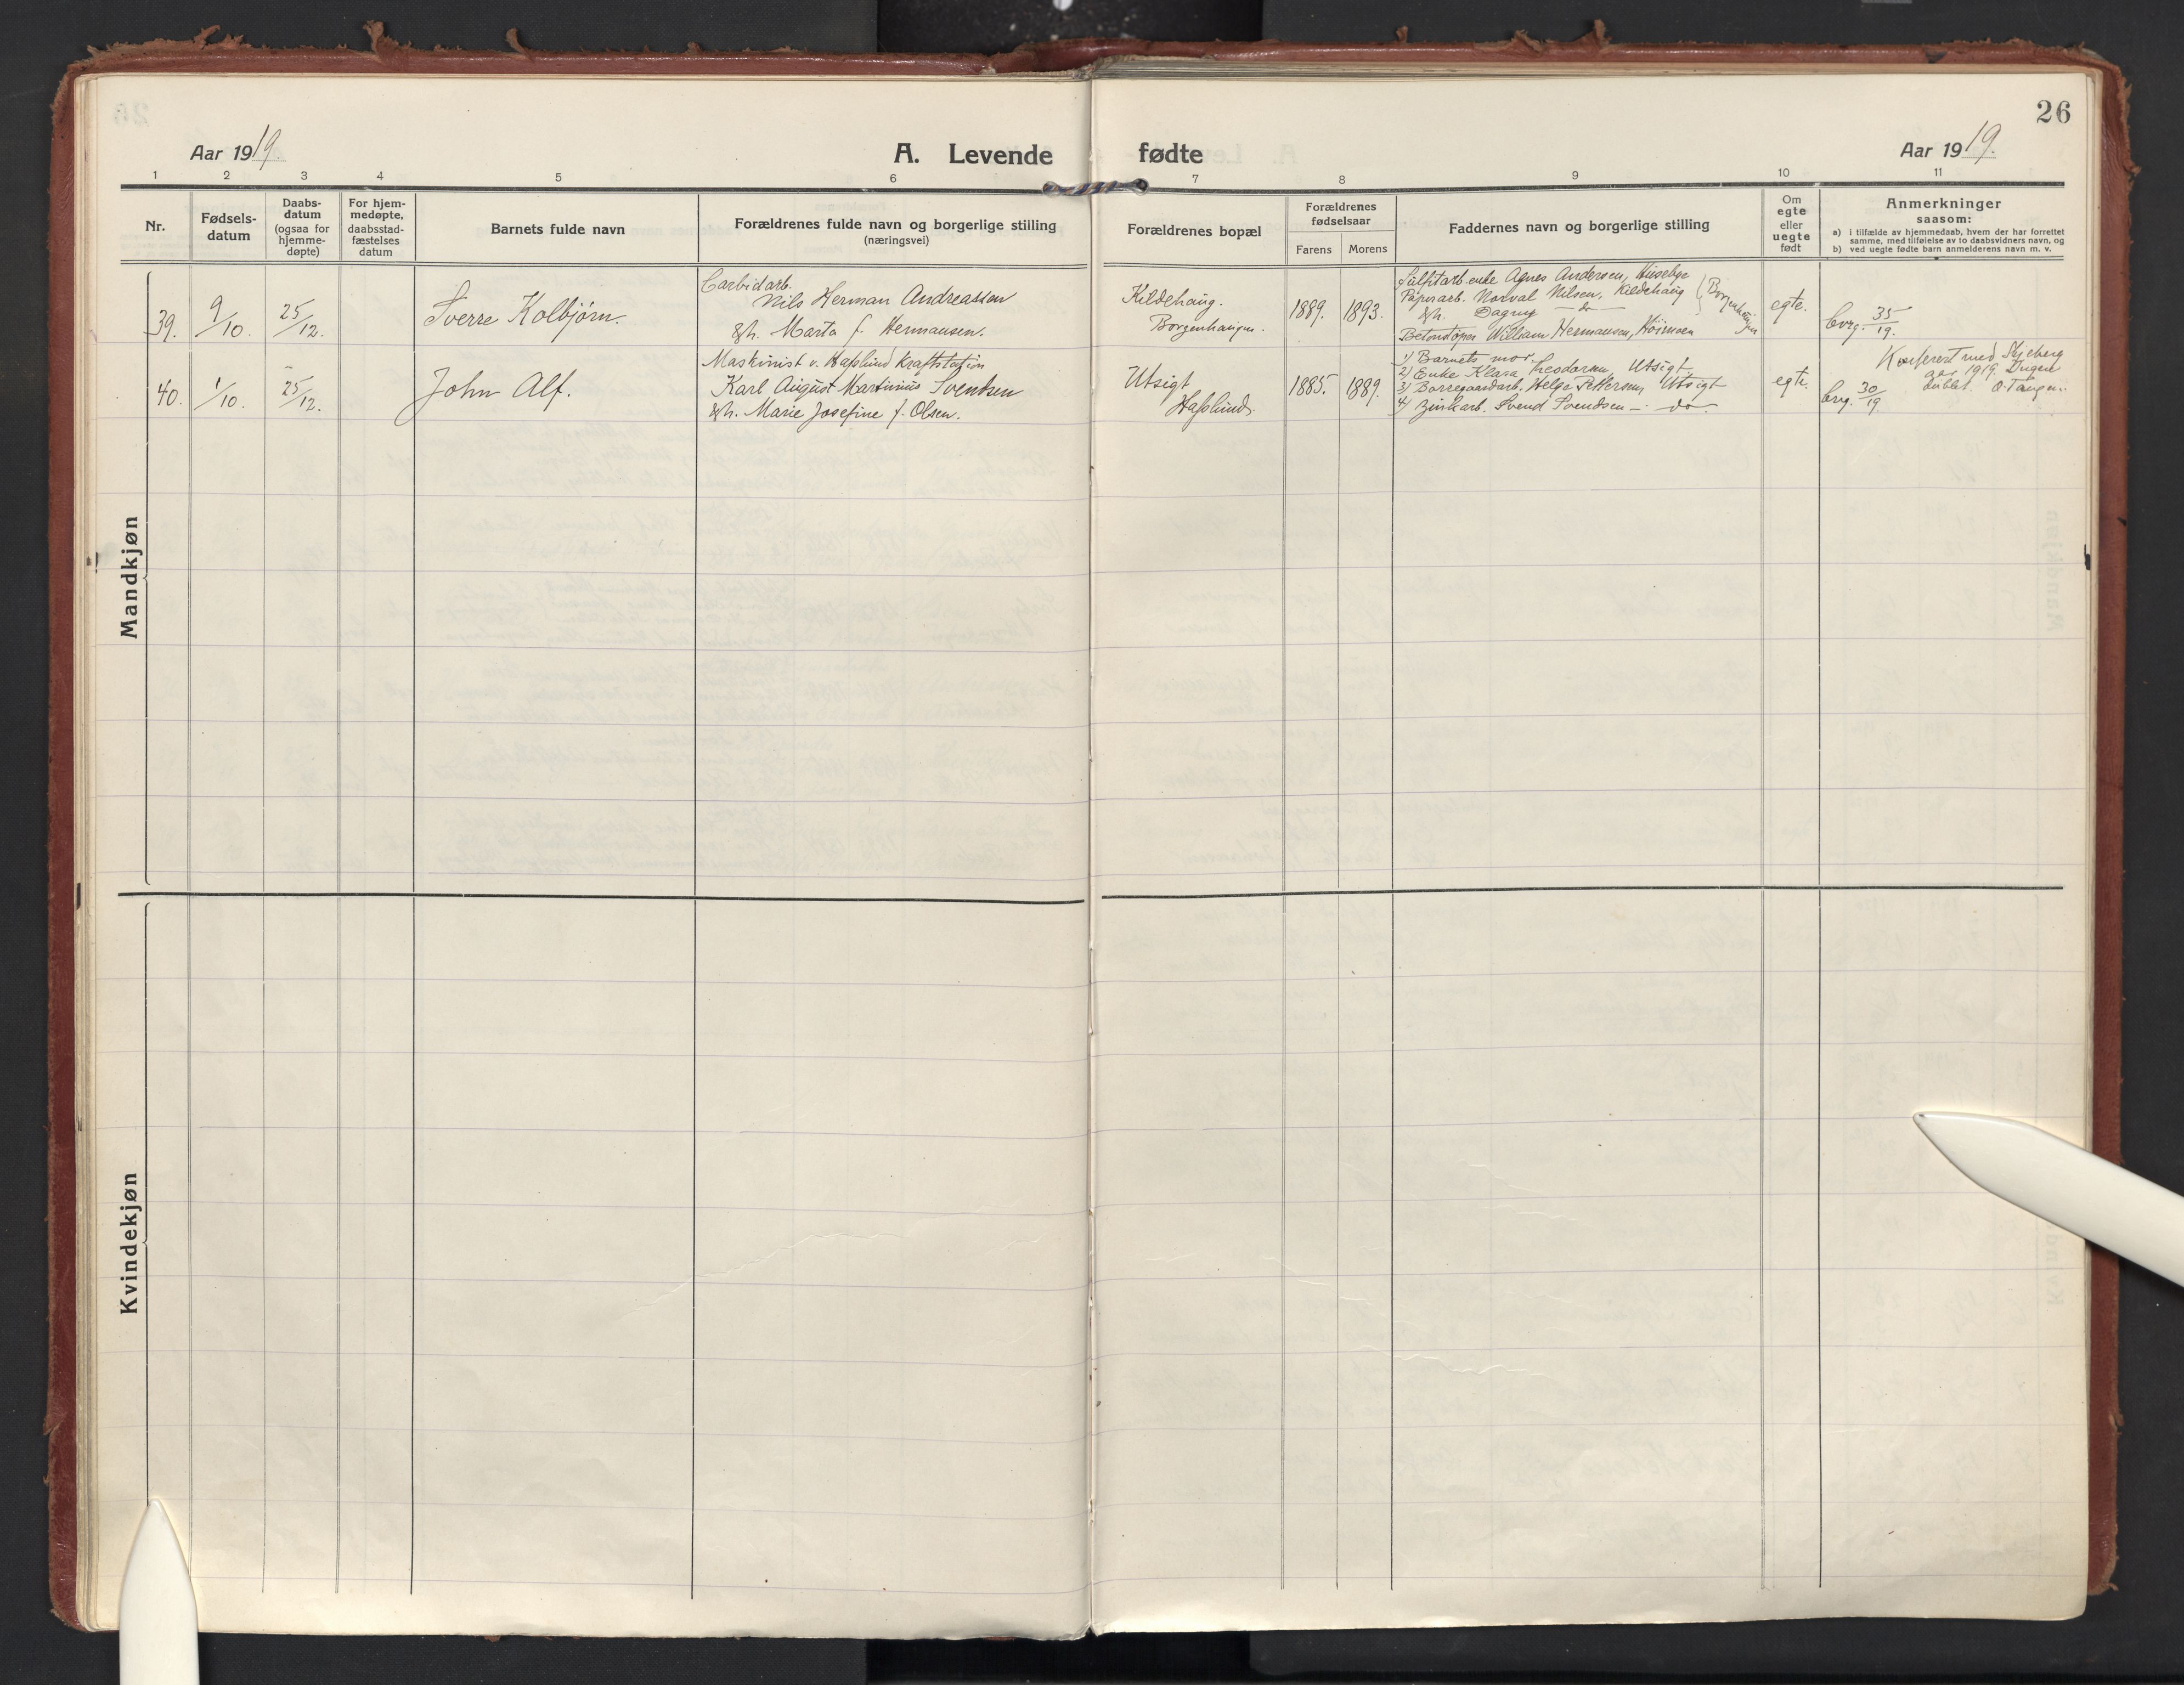 26
Aar 1919.
A. Levende fødte
Aar 1919.
1 2 3 4 5 6 7 8 9 10 11
Nr.
Fødsels-
datum
Daabs-
datum
(ogsaa for
hjemme-
døpte)
For hjem-
medøpte,
daabsstad-
fæstelses
datum
Barnets fulde navn
Forældrenes fulde navn og borgerlige stilling
(næringsvei)
Forældrenes bopæl
Forældrenes
fødselsaar
Farens Morens
Faddernes navn og borgerlige stilling
Om
egte
eller
uegte
født
Anmerkninger
saasom:
a) i tilfælde av hjemmedaab, hvem der har forrettet
samme, med tilføielse av to daabsvidners navn, og
b) ved uegte fødte barn anmelderens navn m. v.
Mandkjøn
39.
9/10.
25/12.
Sverre Kolbjørn.
Carbidarb.
Nils Herman Andreassen
&h. Marta f. Hermansen.
Kildehaug.
Borgenhaugen.
1889. 1893.
Sulfitarb.enke Agnes Andersen, Huseby
Papirarb. Norval Nilsen, Kildehaug
&h. Dagny — do —
William Hermansen,
Borgenhaugen
egte.
Borg. 35/19.
40.
1/10.
25/12.
John Alf.
Maskinist v. Hafslund Kraftstation
Karl August Martinius Svendsen
&h. Marie Josefine f. Olsen.
Utsigt
Hafslund.
1885. 1889.
1) Barnets mor.
2) Enke Klara Theodorsen, Utsigt
3) Borregaardarb. Helge Pettersen, Utsigt
4) Zinkarb. Svend Svendsen — do —
egte.
Borg. 30/19
Konferert med Skjeberg
aar 1919.
dublet. O. Tangen.
Kvindekjøn